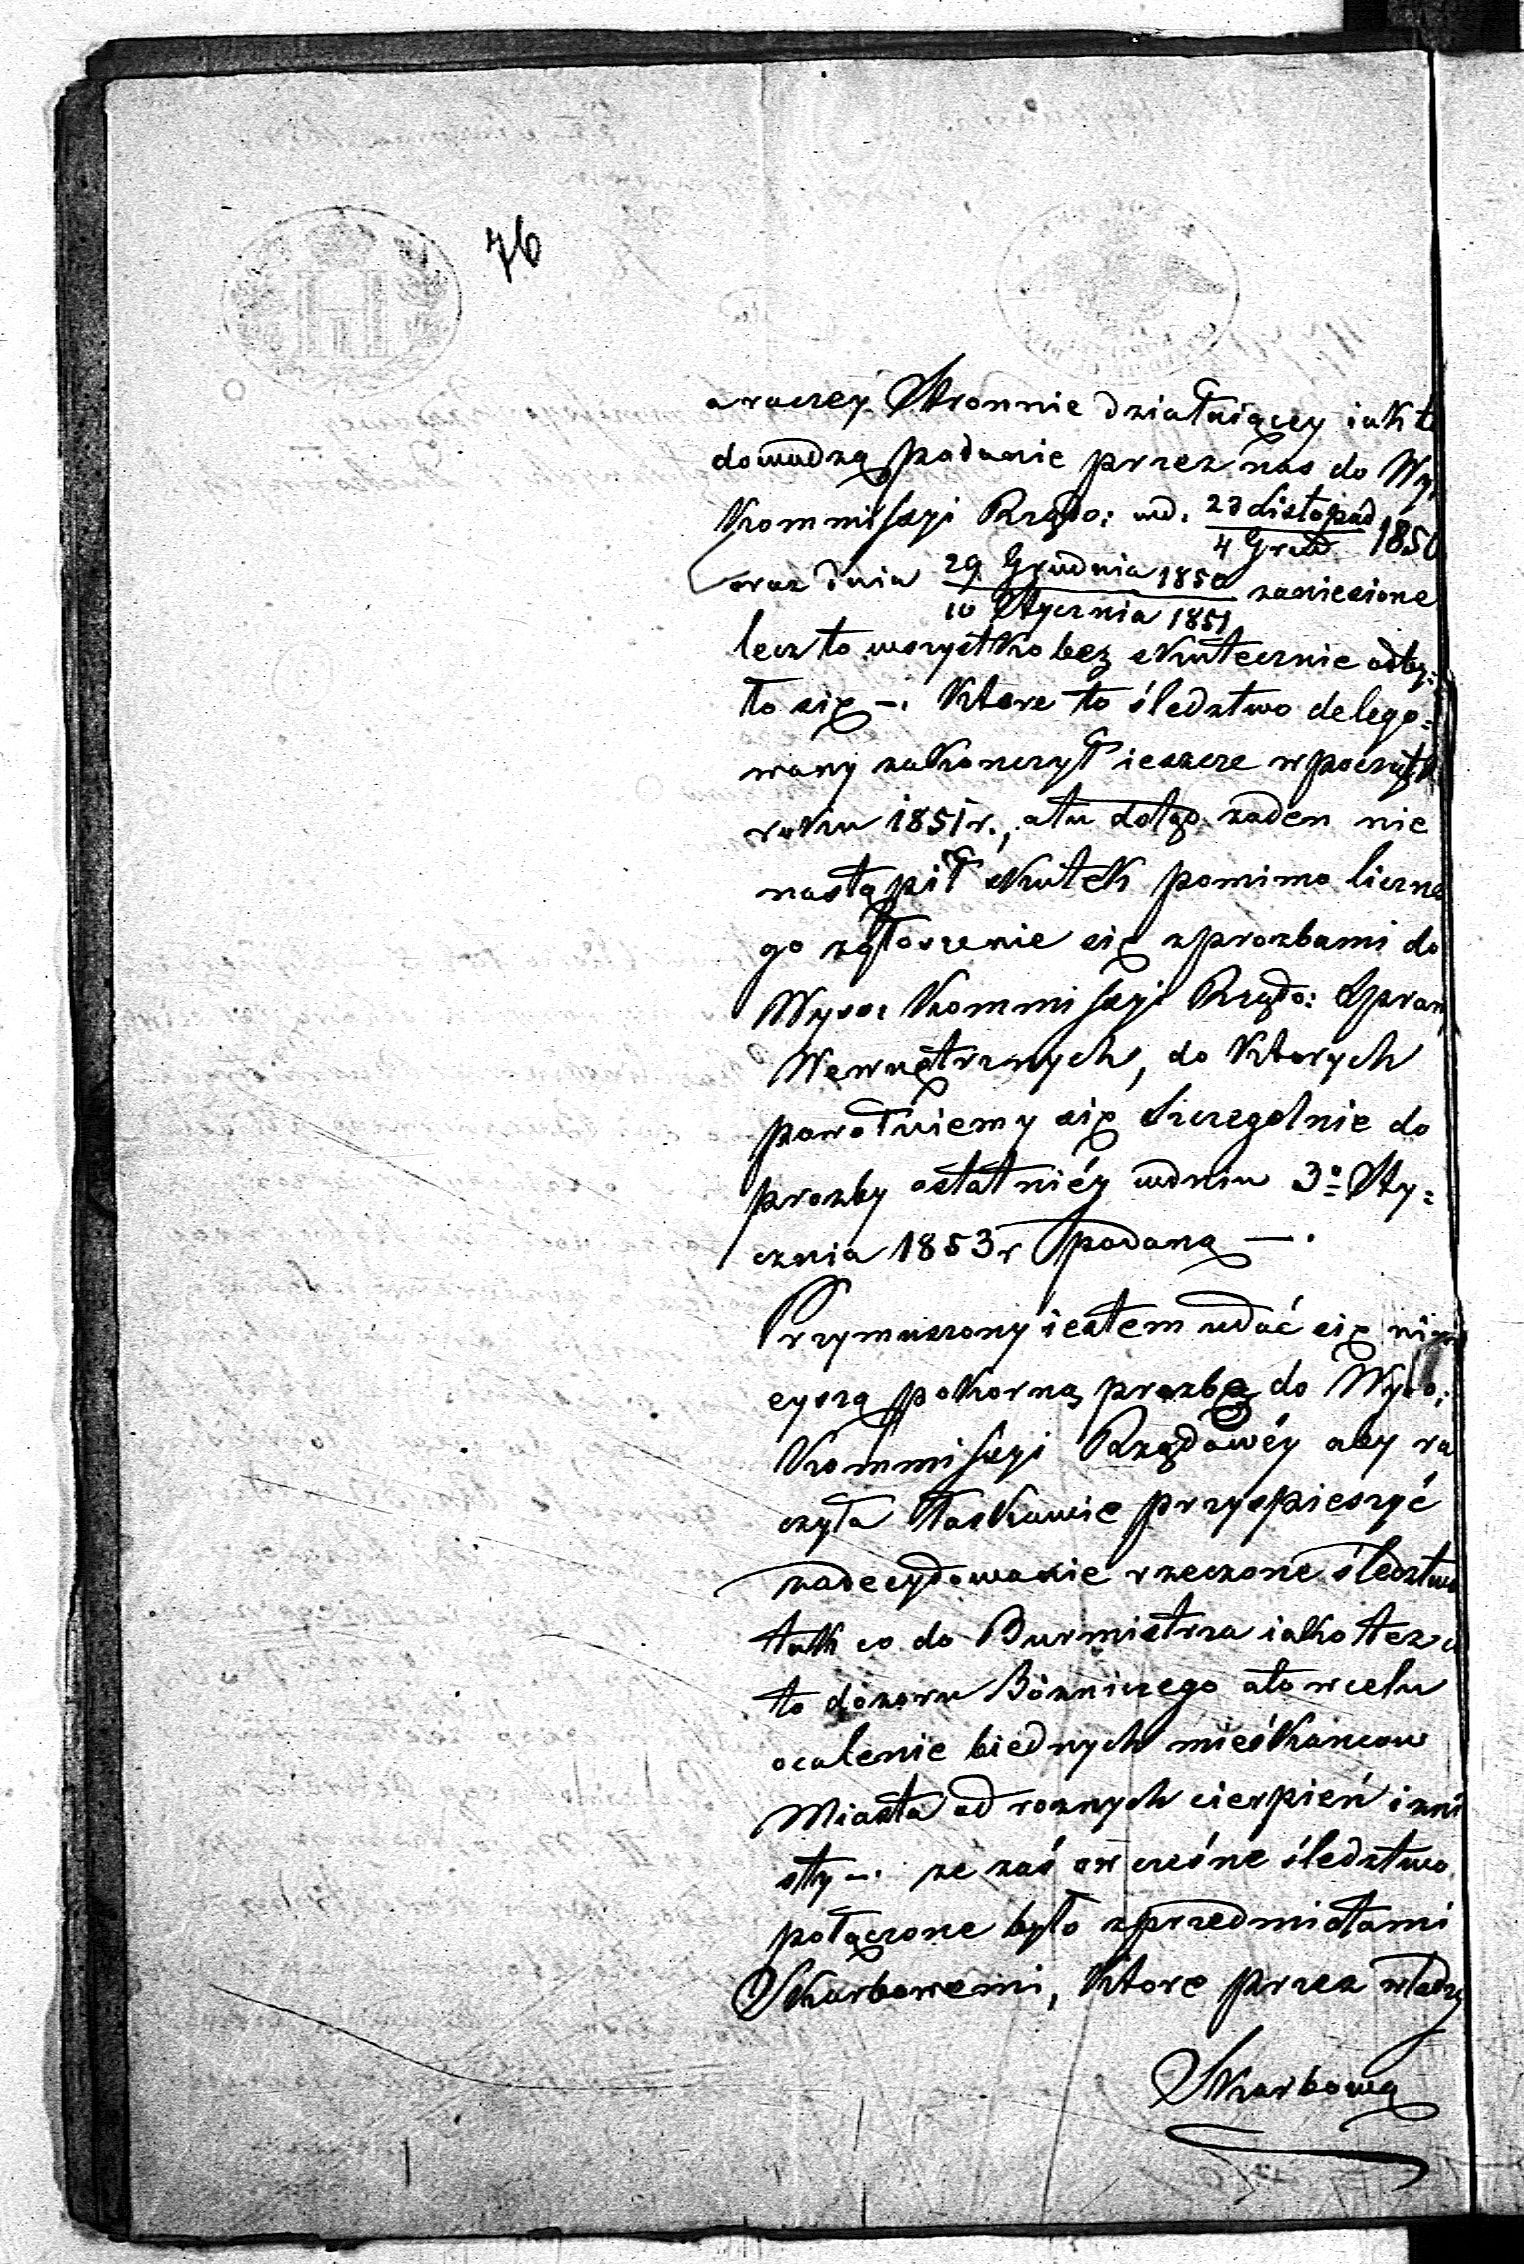 76
araczey Stronnie działaiącey iak to
dowodzą podanie przez nas do Wy.
Kommissyi Rządo: wd. 23 Listopad 1850
4 Grud
oraz dnia 29 Grudnia 1850 zaniesione
10 Stycznia 1851
lecz to wszystko bez skutecznie odby=
ło się —. Ktore to śledztwo delego=
wany zakonczył ieszcze w początk
roku 1851 r., atu dotąd zaden nie
nastąpił skutek pomimo liczne
go zgłoszenie się zprozbami do
Wyso: Kommissyi Rządo: Spraw
Wewnętrznych, do Ktorych
powołuiemy się Szczegolnie do
prozby ostatniéy wdniu 3º Sty=
cznia 1853 r podaną —.
Przymuszony iestem udać się nin
eyszą pokorną prozbą do Wyso:
Kommissyi Rządowéy aby ra
czyła łaskawie przyspieszyć
zadecydowanie rzeczone śledztwo
tak co do Burmistrza iako tez c
to dozoru Bózniczego ato w celu
ocalenie biednych mieśkancow
Miasta od roznych cierpień i zni
sty —. ze zaś śledztwo
połączone było zprzedmiotami
Skarbowemi, Ktore przez władzę
Skarbową